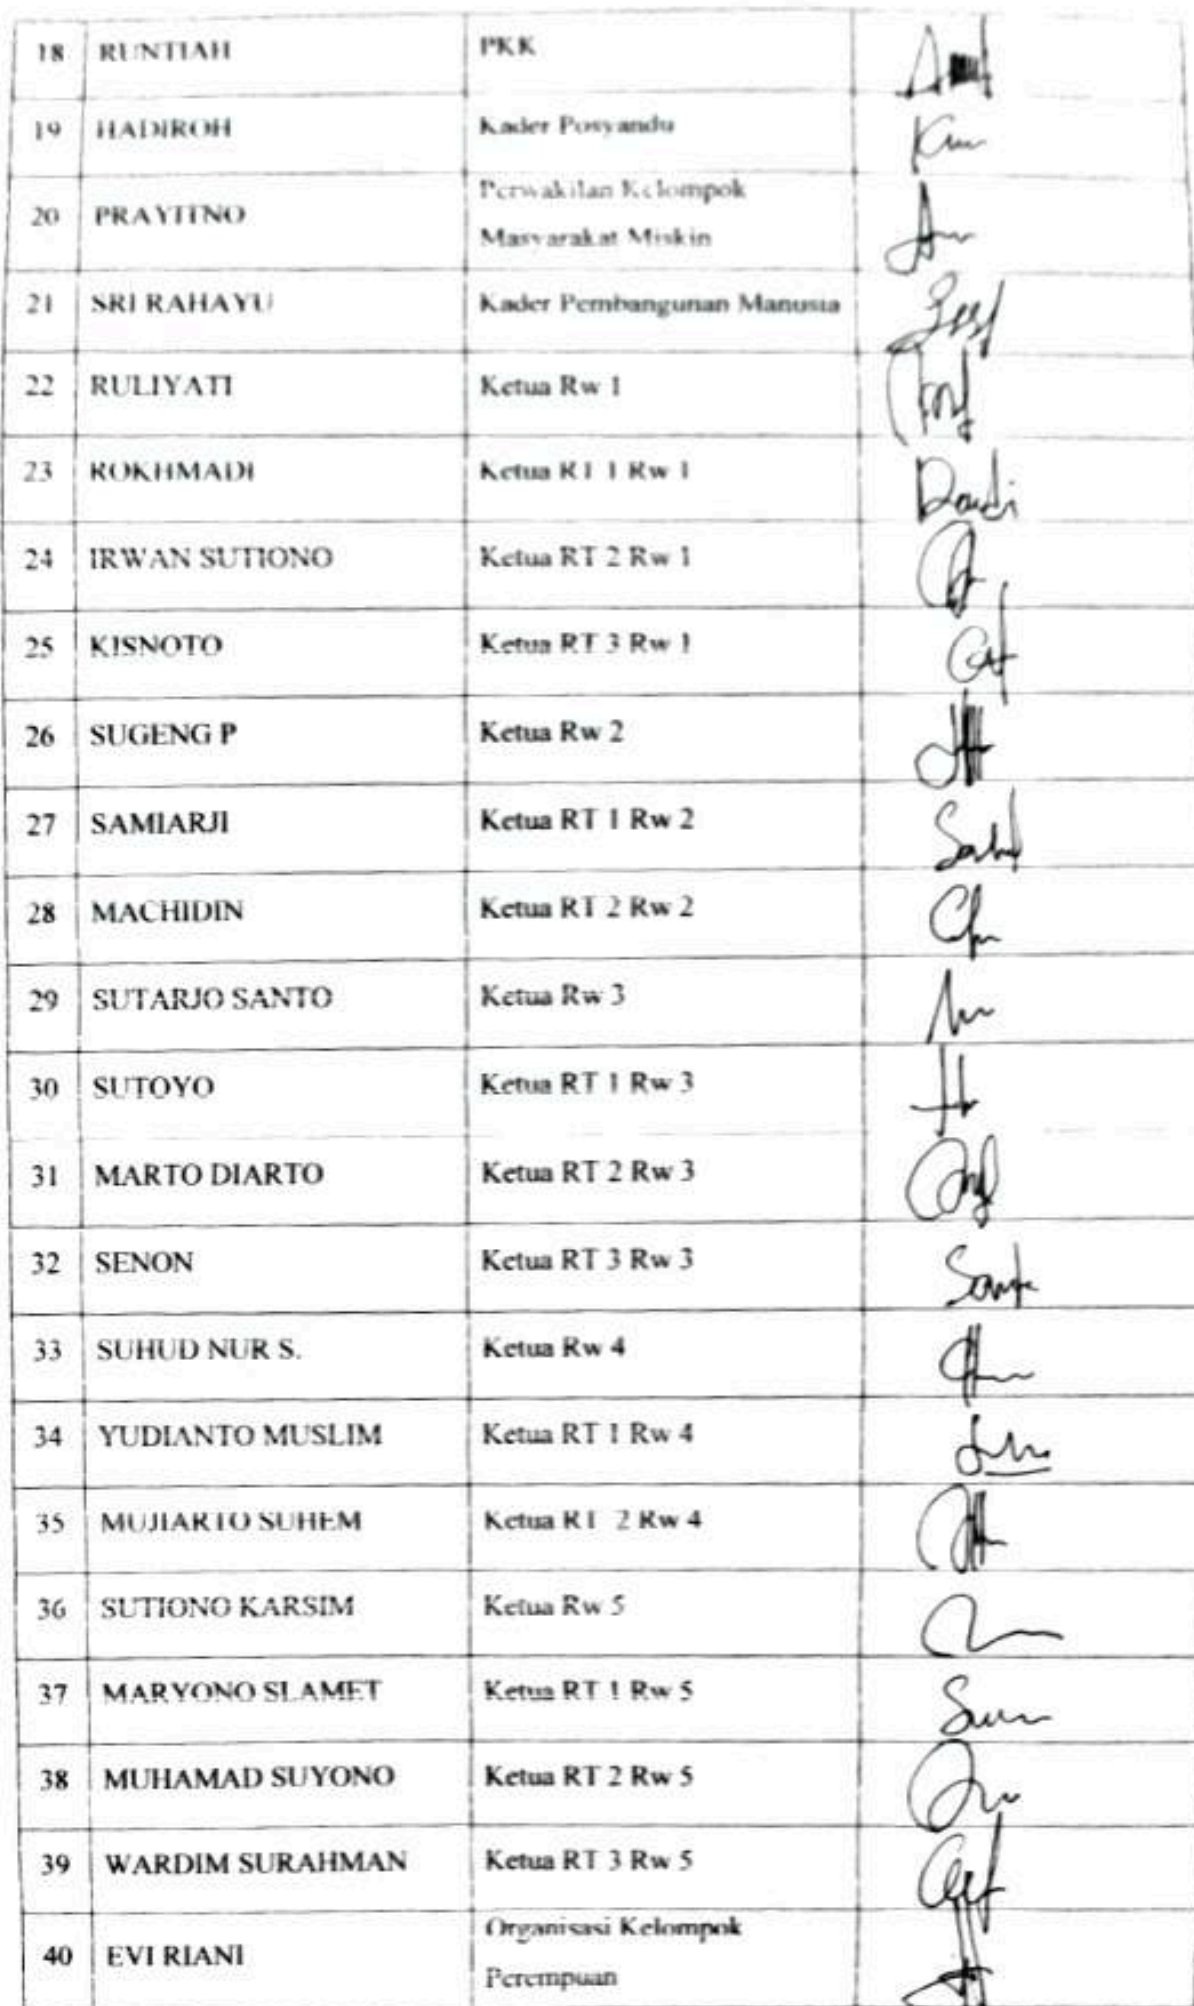 18 RUNTIAH PKK
19 HADIROH Kader Posyandu
20 PRAYITNO Perwakilan Kelompok
Masyarakat Miskin
21 SRI RAHAYU Kader Pembangunan Manusia
22 RULIYATI Ketua Rw 1
23 ROKHMADI Ketua RT 1 Rw 1
24 IRWAN SUTIONO Ketua RT 2 Rw 1
25 KISNOTO Ketua RT 3 Rw 1
26 SUGENG P Ketua Rw 2
27 SAMIARJI Ketua RT 1 Rw 2
28 MACHIDIN Ketua RT 2 Rw 2
29 SUTARJO SANTO Ketua Rw 3
30 SUTOYO Ketua RT 1 Rw 3
31 MARTO DIARTO Ketua RT 2 Rw 3
32 SENON Ketua RT 3 Rw 3
33 SUHUD NUR S. Ketua Rw 4
34 YUDIANTO MUSLIM Ketua RT 1 Rw 4
35 MUJIARTO SUHEM Ketua RT 2 Rw 4
36 SUTIONO KARSIM Ketua Rw 5
37 MARYONO SLAMET Ketua RT 1 Rw 5
38 MUHAMAD SUYONO Ketua RT 2 Rw 5
39 WARDIM SURAHMAN Ketua RT 3 Rw 5
40 EVI RIANI Organisasi Kelompok
Perempuan